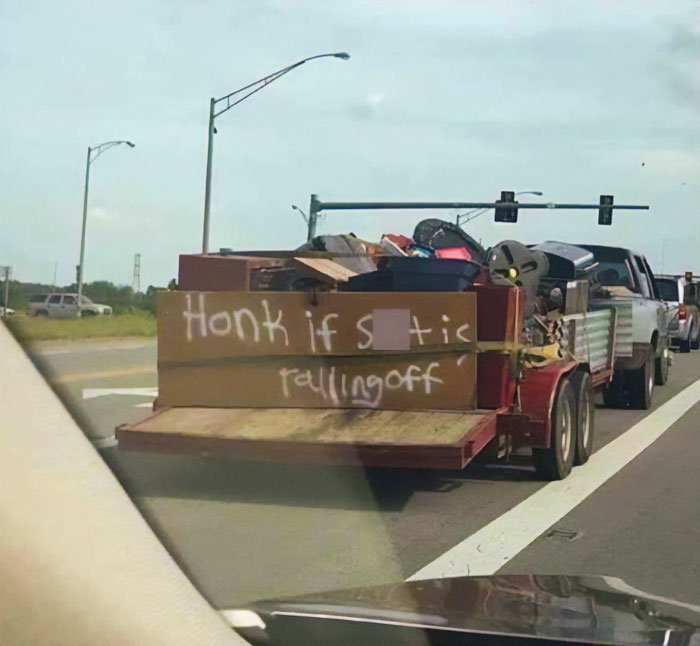 Honk if S t is
falling off